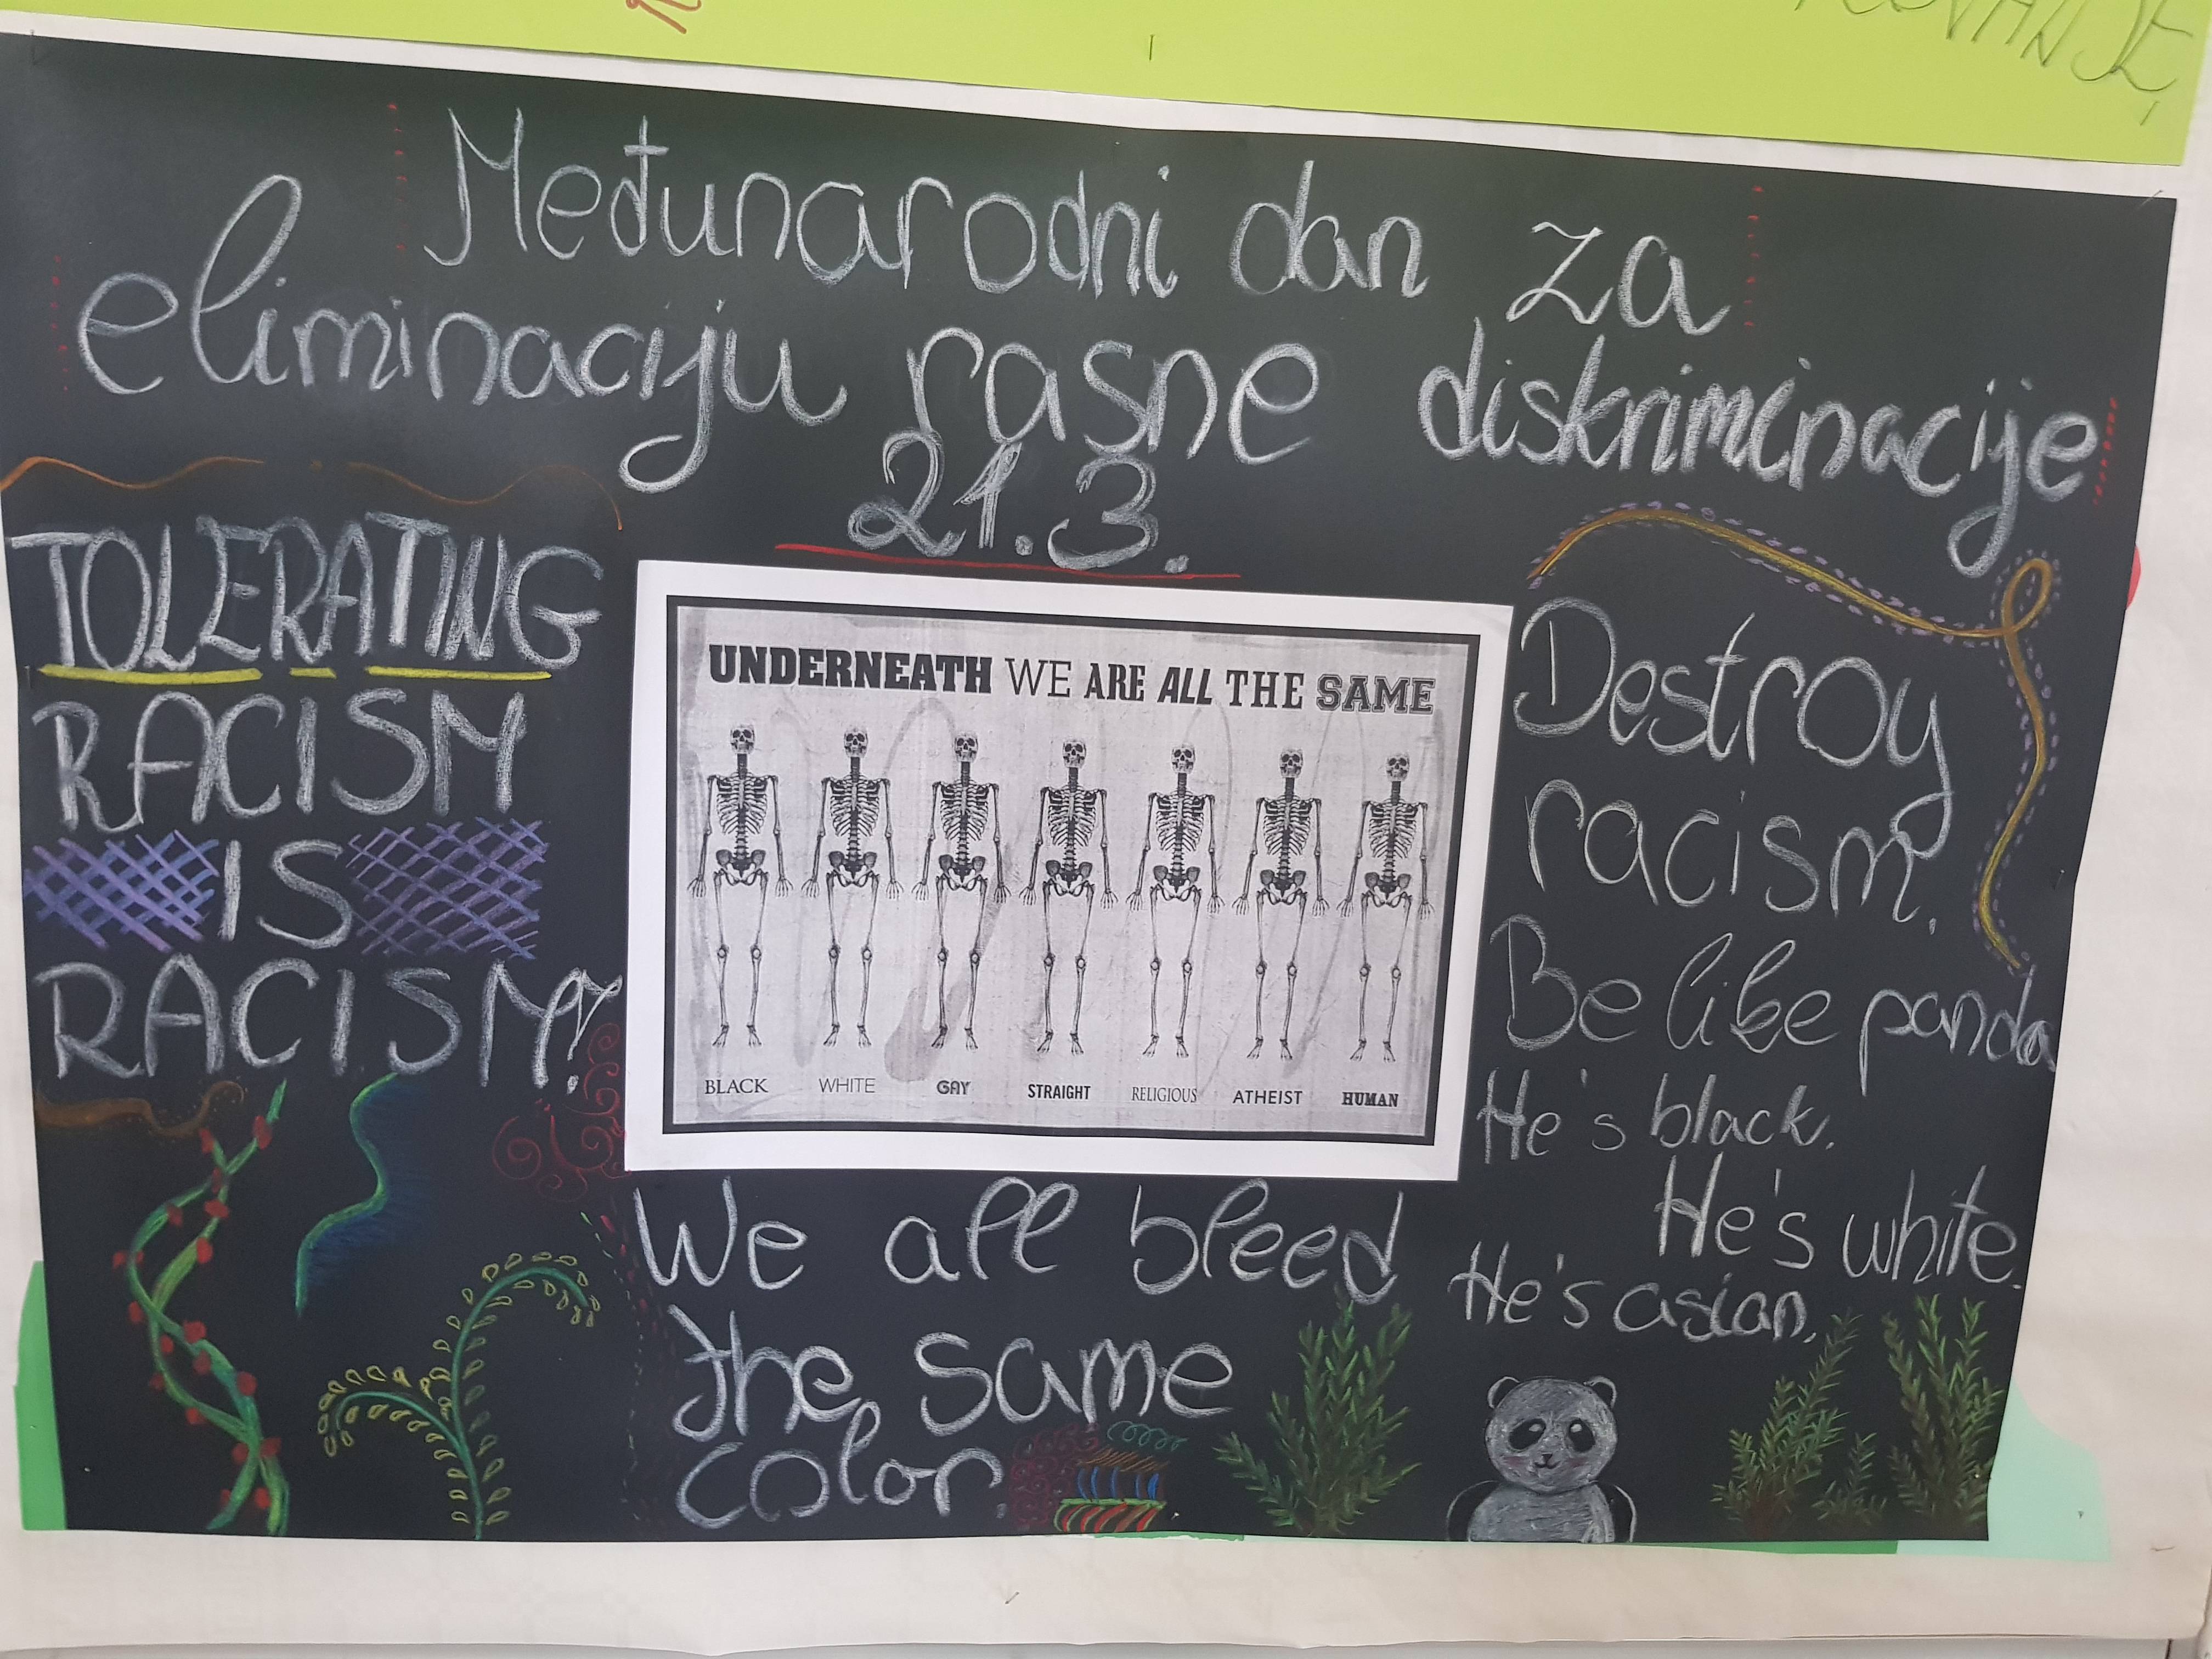 Međunarodni dan za
eliminaciju rasne diskriminacije
21.3.
TOLERATING
RACISM
IS
RACISM!
UNDERNEATH WE ARE ALL THE SAME
BLACK WHITE GAY STRAIGHT RELIGIOUS ATHEIST HUMAN
We all bleed
the same
color.
Destroy
racism.
Be like panda
He's black.
He's white.
He's asian.